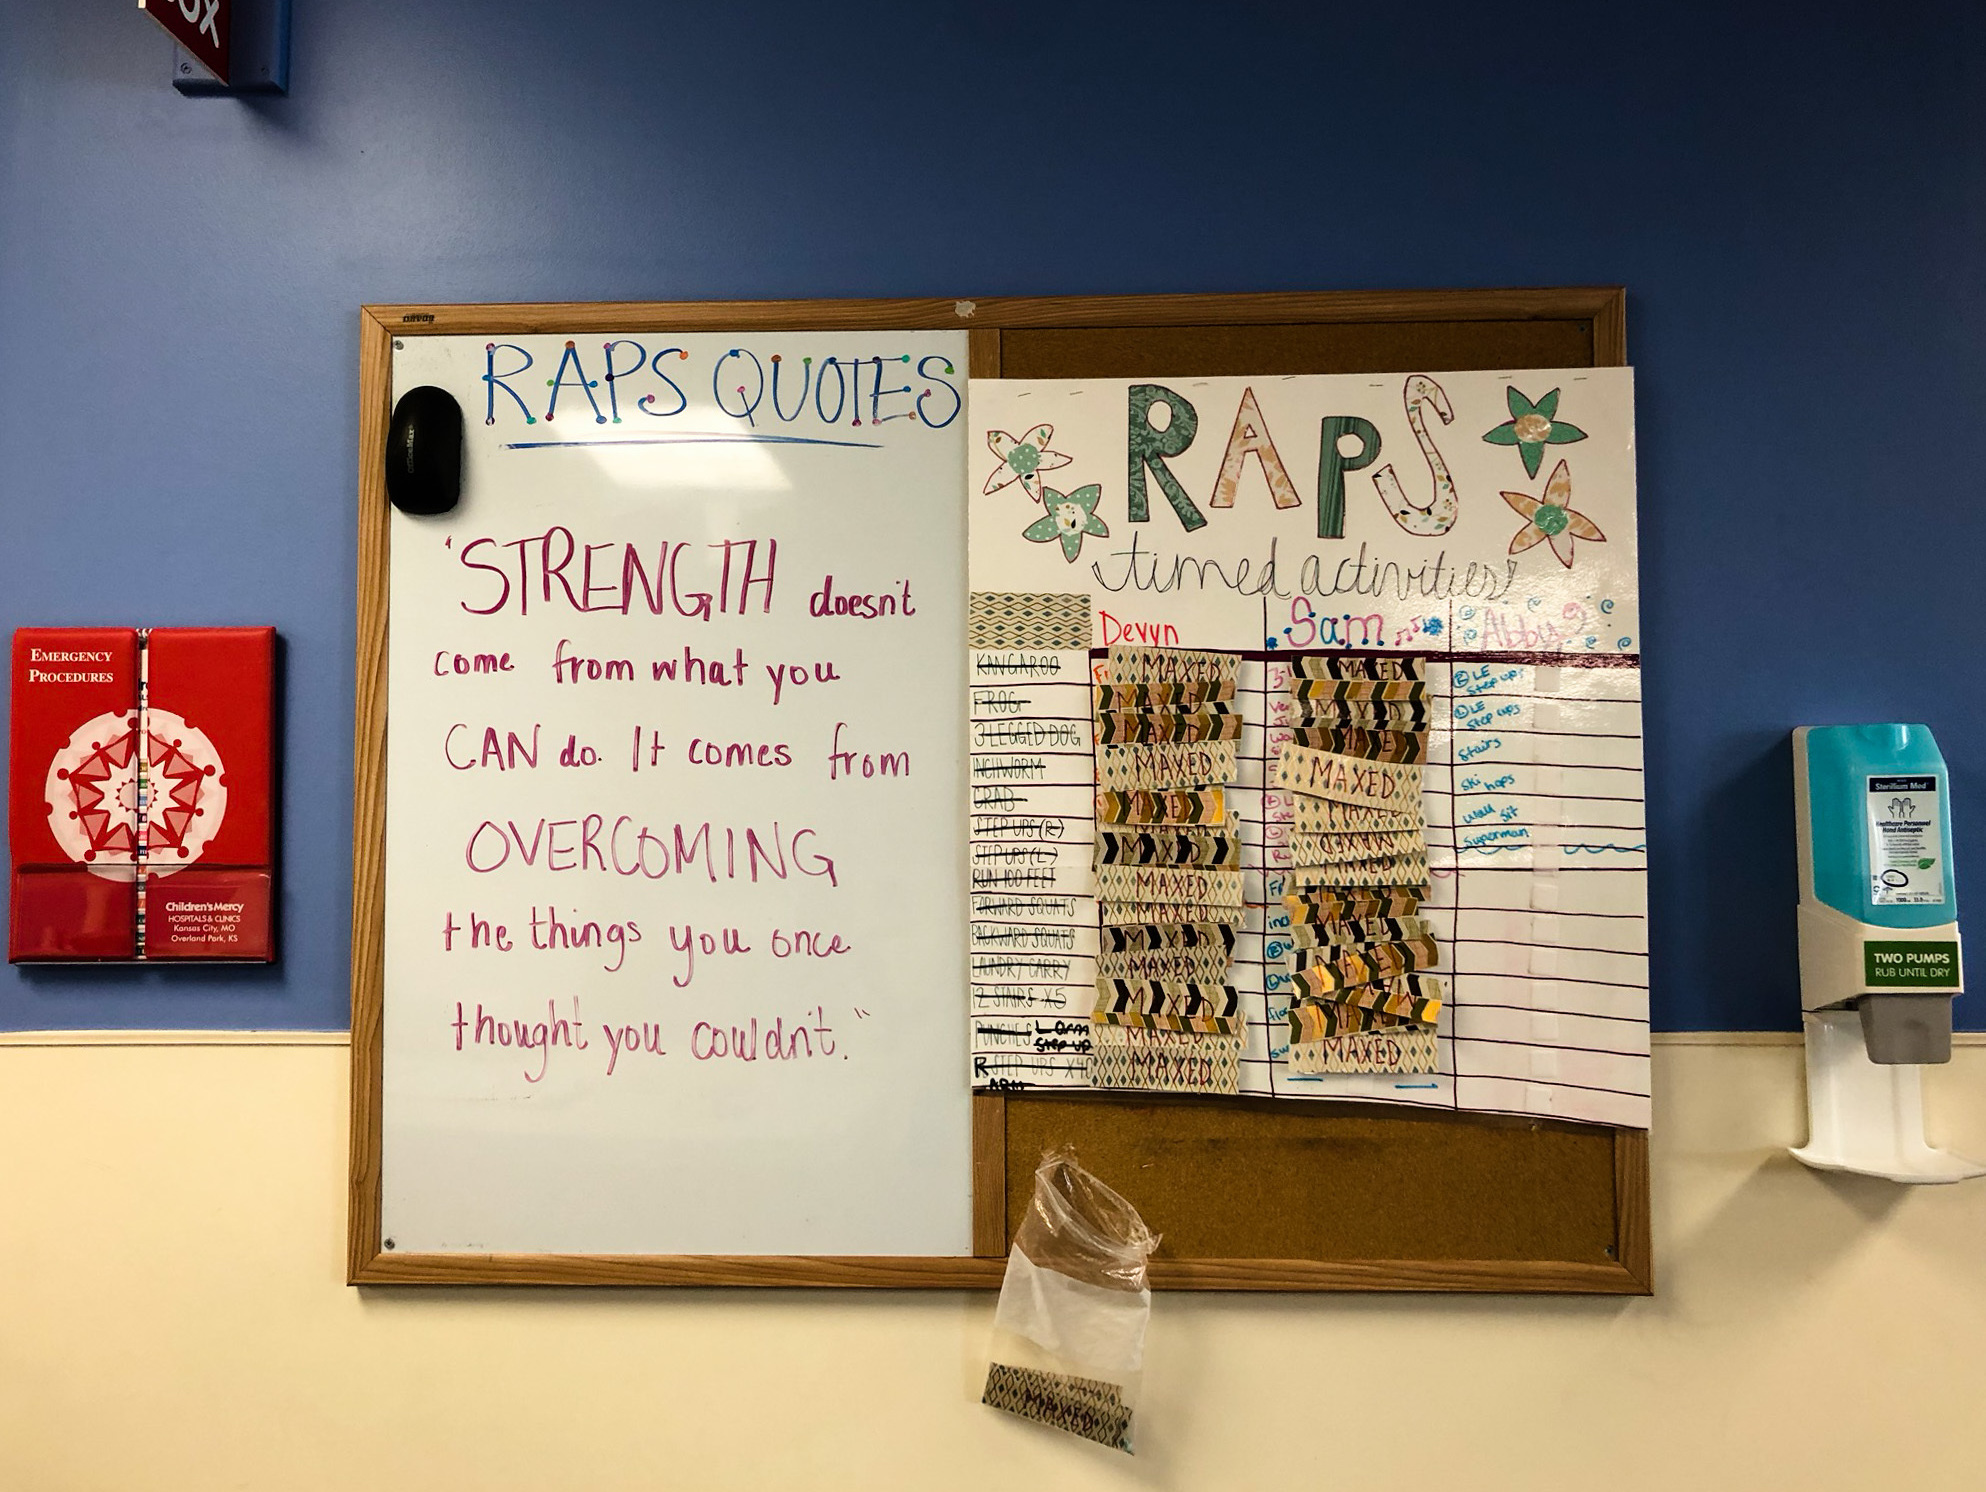 OX
anvan
RAPS QUOTES
OfficeMax
"STRENGTH doesn't
come from what you
CAN do. It comes from
OVERCOMING
the things you once
thought you couldn't."
EMERGENCY
PROCEDURES
Children's Mercy
HOSPITALS & CLINICS
Kansas City, MO
Overland Park, KS
RAPS
timed activities
Devyn Sam Abby
KANGAROO MAXED MAXED
FROG MAXED MAXED
3 LEGGED DOG MAXED MAXED
INCHWORM MAXED MAXED
CRAB MAXED MAXED
STEP UPS (R) MAXED
STEP UPS (L) MAXED MAXED
RUN 100 FEET MAXED MAXED
FORWARD SQUATS MAXED
BACKWARD SQUATS MAXED MAXED
LAUNDRY CARRY MAXED MAXED
12 STAIRS X5 MAXED
PUNCHES L arm step up MAXED MAXED
R STEP UPS X40 MAXED MAXED
ARM
R LE
Step ups
L LE
Step ups
Stairs
Ski hops
Wall sit
Superman
MAXED
Sterillium Med
Healthcare Personnel
Hand Antiseptic
TWO PUMPS
RUB UNTIL DRY